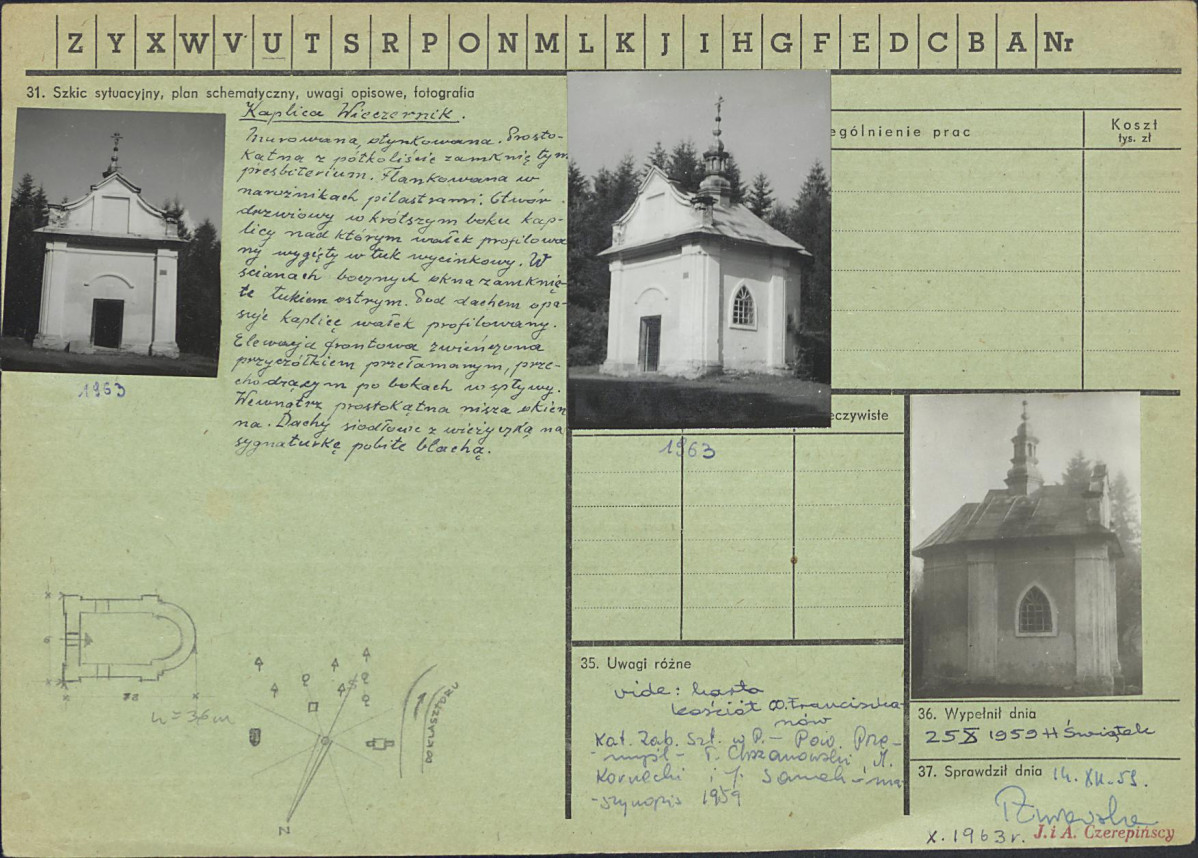 Z Y X W V U T S R P O N M L K J I H G F E D C B A Nr
31. Szkic sytuacyjny, plan schematyczny, uwagi opisowe, fotografia
Kaplica Wieczernik.
Murowana, otynkowana. Prosto-
kątna z półkoliście zamkniętym
presbiterium. Flankowana w
narożnikach pilastrami. Otwór
drzwiowy w krótszym boku kap-
licy nad którym wałek profilowa
ny wygięty w łuk wycinkowy. W
ścianach bocznych okna zamknię-
te łukiem ostrym. Pod dachem opa-
suje kaplicę wałek profilowany.
Elewacja frontowa zwieńczona
przyczółkiem przełamanym, prze-
chodzącym po bokach w spływy.
Wewnątrz prostokątna nisza okien
na. Dachy siodłowe z wieżyczką na
sygnaturkę pobite blachą.
1963
1963
ególnienie prac
Koszt
tys. zł
eczywiste
h = 3,6 m
DO KLASZTORU
S
Z
35. Uwagi różne
vide: karta
kościół OO. Franciszka-
nów
Kat. Zab. Szt. w P. - Pow. Prze-
-myśl - T. Chrzanowski, M.
Kornecki i J. Samek - ma-
-szynopis 1959
36. Wypełnił dnia
25 X 1959 H Świątek
37. Sprawdził dnia 14. XII. 59.
X. 1963 r. J. i A. Czerepińscy